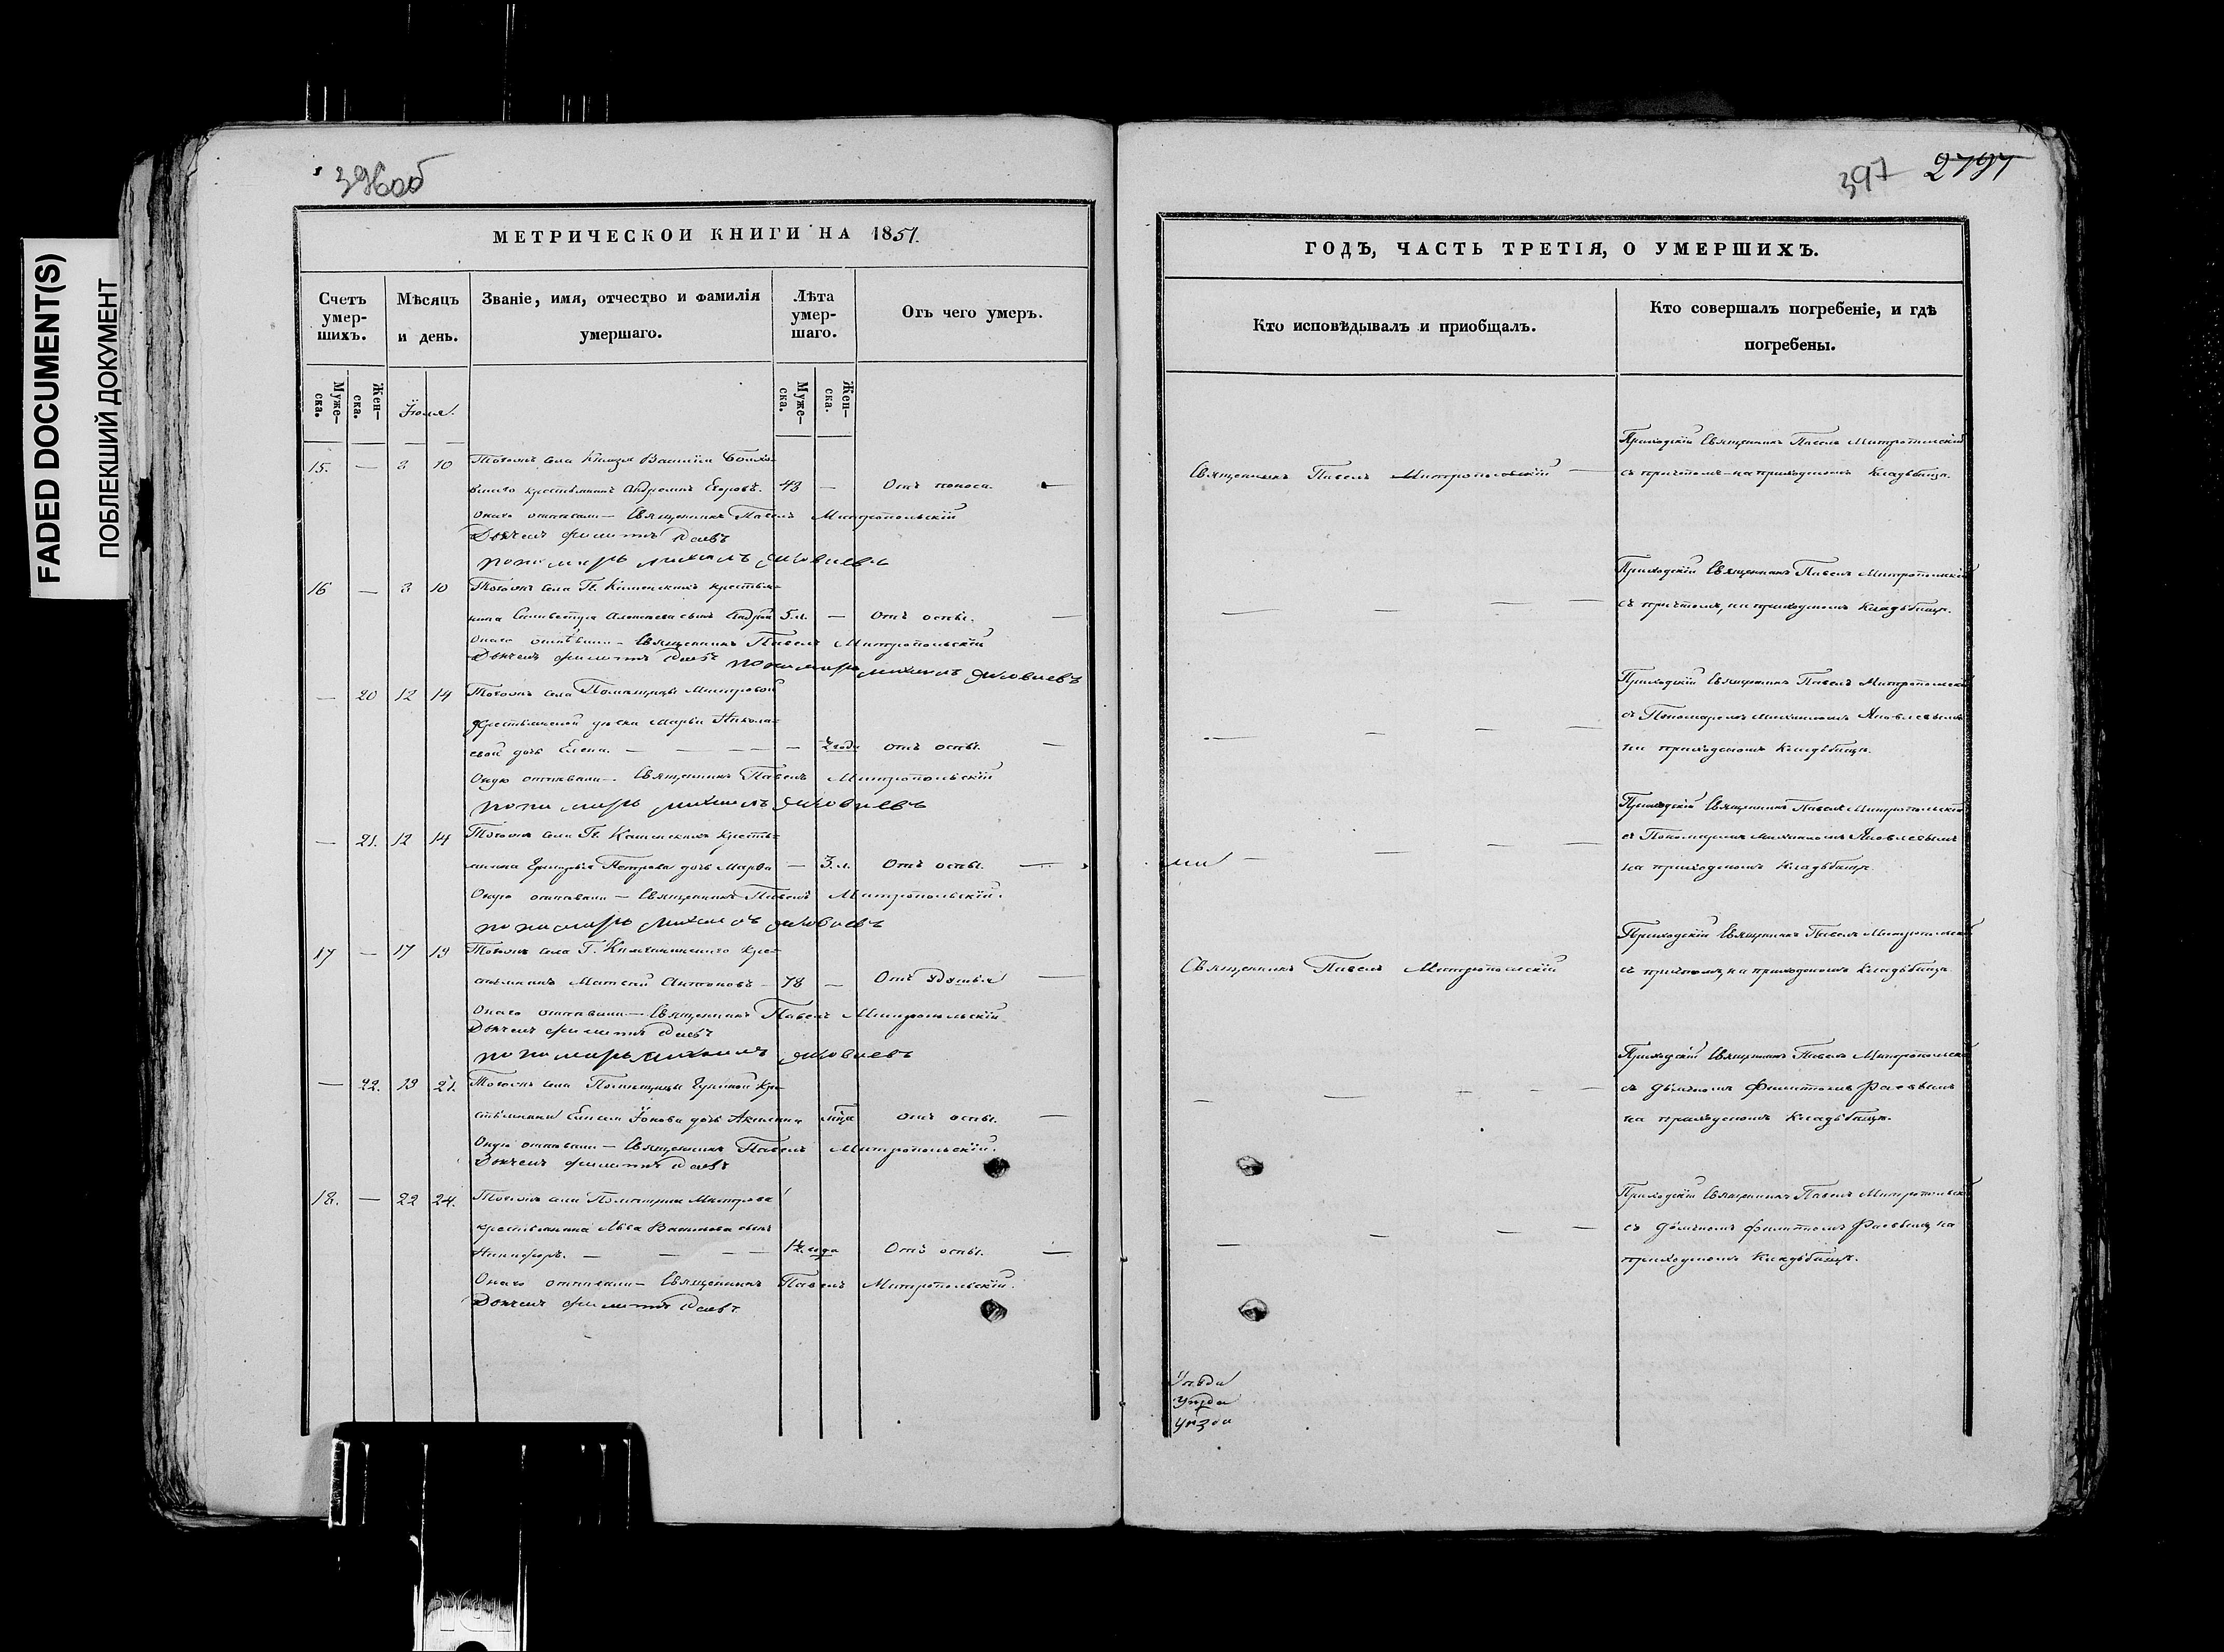 FADED DOCUMENT(S)
ПОБЛЕКШИЙ ДОКУМЕНТ
396об
МЕТРИЧЕСКОИ КНИГИ НА 1851.
Счетъ умер-шихъ.
Мѣсяцъ и день.
Званіе, имя, отчество и фамилія умершаго.
Лѣта умер-шаго.
Отъ чего умеръ.
Муже-ска.
Жен-ска.
Іюля.
Муже-ска.
Жен-ска.
15. — 8 10 Тогожъ села Князя Василія
крестьянинъ Андреянъ Егоровъ. 43 — Отъ поноса.
Онаго отпѣвали — Священникъ Павелъ Митропольскій
Дьячекъ Филиппъ Раевъ
пономарь михаилъ яковлевъ
16 — 8 10 Тогожъ села Гг. крестья-
нина Селивестра сынъ Андрей 5.м. — Отъ оспы. —
Онаго отпѣвали — Священникъ Павелъ Митропольскій
Дьячекъ Филиппъ Раевъ пономарь михаилъ яковлевъ
— 20 12 14 Тогожъ села Помѣщицы
крестьянской дѣвки Марьи Никола-
евой дочь Елена. — — — ½ года отъ оспы. —
Оную отпѣвали — Священникъ Павелъ Митропольскій
пономарь михаилъ яковлевъ
— 21. 12 14 Тогожъ села Гг. кресть-
янина Григорья Петрова дочь Марѳа — 3.м. Отъ оспы. —
Оную отпѣвали — Священникъ Павелъ Митропольскій.
пономарь михаилъ яковлевъ
17 — 17 19 Тогожъ села Г. кре-
стьянинъ Матвей Антоновъ — 78 — Отъ удушья —
Онаго отпѣвали — Священникъ Павелъ Митропольскій
Дьячекъ Филиппъ Раевъ
пономарь михаилъ яковлевъ
— 22. 19 21. Тогожъ села Помѣщицы кре-
стьянина Іонова дочь Акилина мѣца отъ оспы. —
Оную отпѣвали — Священникъ Павелъ Митропольскій.
Дьячекъ Филиппъ Раевъ
18. — 22 24. Тогожъ села
крестьянина Льва сынъ
Никифоръ. — — — 1½ года Отъ оспы. —
Онаго отпѣвали — Священникъ Павелъ Митропольскій.
Дьячекъ Филиппъ Раевъ.
397 2797
ГОДЪ, ЧАСТЬ ТРЕТІЯ, О УМЕРШИХЪ.
Кто исповѣдывалъ и приобщалъ.
Кто совершалъ погребеніе, и гдѣ погребены.
Священникъ Павелъ Митропольскій —
Приходскій Священникъ Павелъ Митропольскій
съ причтомъ — на приходскомъ Кладьбищѣ.
— — — —
Приходскій Священникъ Павелъ Митропольскій
съ причтомъ, на приходскомъ Кладьбищѣ.
— — — —
Приходскій Священникъ Павелъ Митропольскій
съ Пономаремъ Михаиломъ Яковлевымъ
на приходскомъ Кладьбищѣ.
— — — —
Приходскій Священникъ Павелъ Митропольскій
съ Пономаремъ Михаиломъ Яковлевымъ
на приходскомъ Кладьбищѣ.
Священникъ Павелъ Митропольскій
Приходскій Священникъ Павелъ Митропольскій
съ причтомъ, на приходскомъ Кладьбищѣ.
— — — — —
Приходскій Священникъ Павелъ Митропольскій
съ дьячкомъ Филиппомъ Раевымъ
на приходскомъ Кладьбищѣ.
— — — —
Приходскій Священникъ Павелъ Митропольскій
съ дьячкомъ Филиппомъ Раевымъ на
приходскомъ Кладьбищѣ.